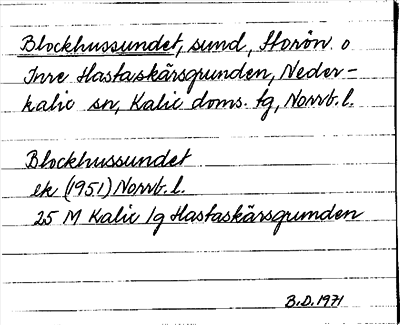 Blockhussundet, sund, Storön o
Inre Hastaskärsgrunden, Neder-
kalix sn, Kalix doms. tg, Norrb. l.
Blockhussundet
ek (1951) Norrb. l.
25 M Kalix lg Hastaskärsgrunden
B.D. 1971